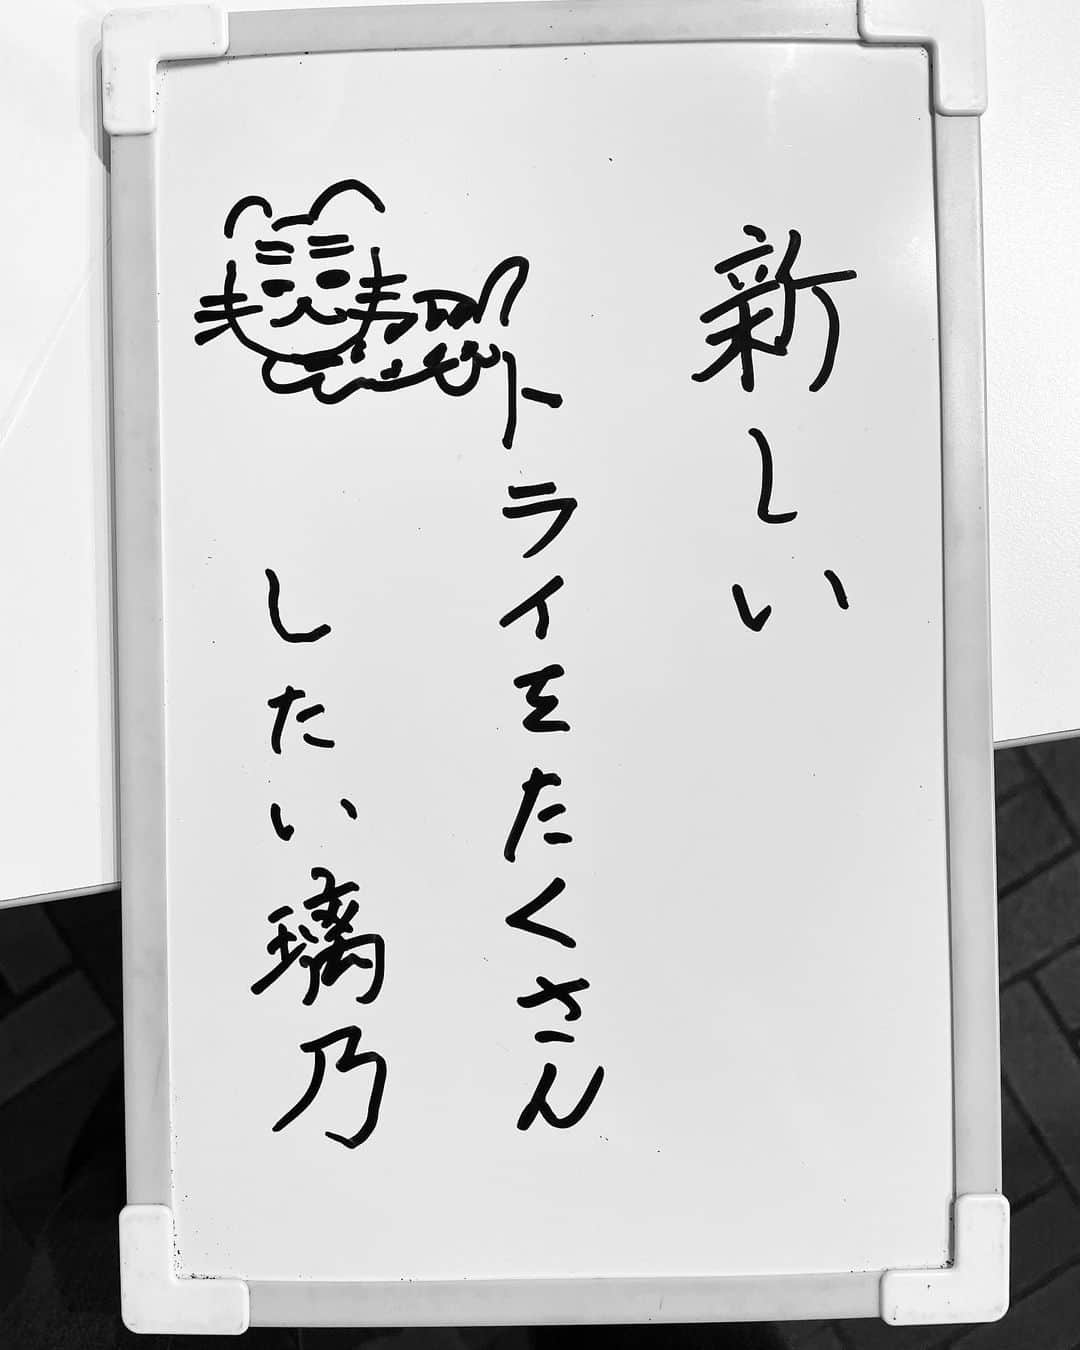 新しい
トライをたくさん
したい璃乃